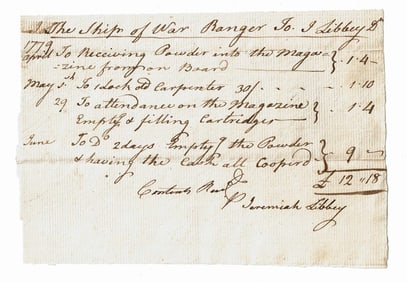 The Ship of War Ranger To J Libbey Dr
1779
April To Receiving Powder into the Maga-
zine from on Board } 1 " 4 -
May 5th To 1 dock Carpenter 30/ - - - 1 " 10
29 To attendance on the Magazine
Empty & filling Cartridges } 1 " 4
June To Do 2 days Empty g the Powder
& having the Cask all Cooperd } 9 -
£ 12 " 18
Contents Recd
Pr Jeremiah Libbey